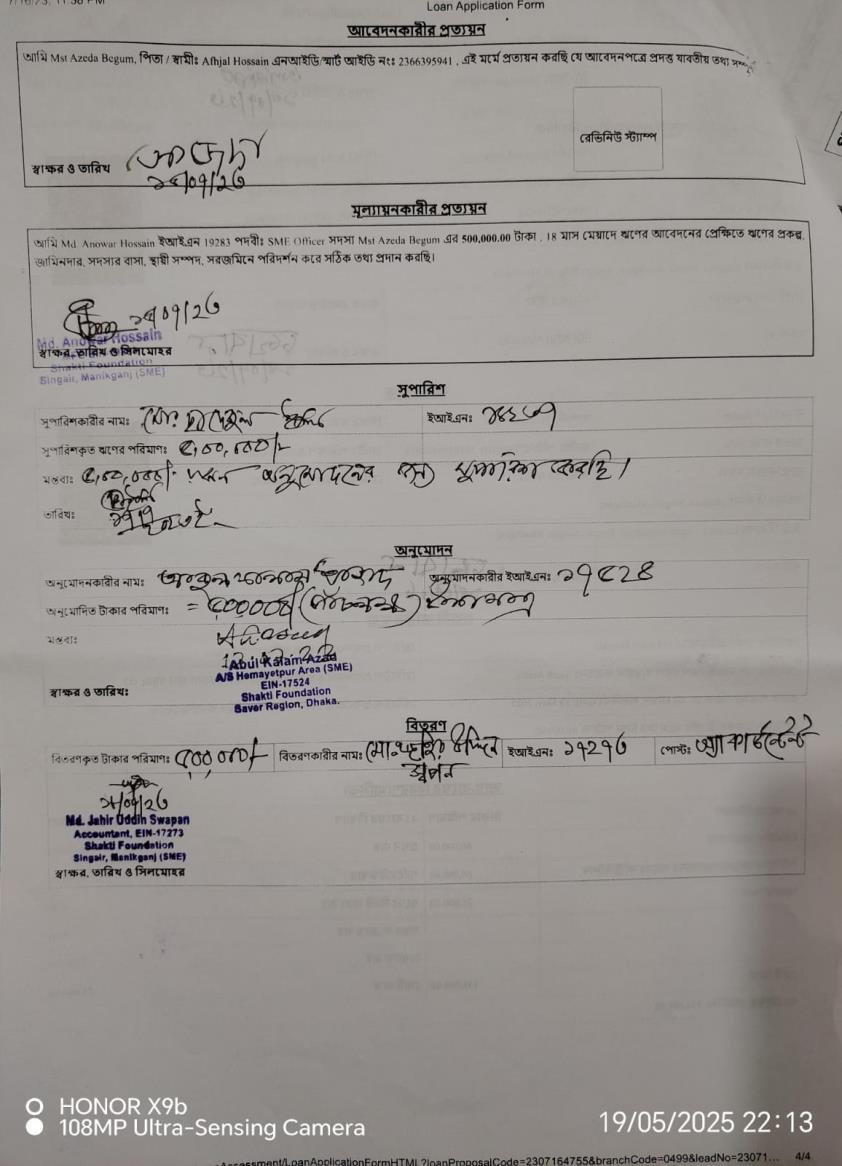 Loan Application Form
আবেদনকারীর প্রত্যয়ন
আমি Mst Azeda Begum, পিতা / স্বামীঃ Afhjal Hossain এনআইডি/স্মার্ট আইডি নংঃ 2366395941 , এই মর্মে প্রত্যয়ন করছি যে আবেদনপত্রে প্রদত্ত যাবতীয় তথ্য
রেভিনিউ স্ট্যাম্প
স্বাক্ষর ও তারিখ
মূল্যায়নকারীর প্রত্যয়ন
আমি Md. Anowar Hossain ইআইএন 19283 পদবীঃ SME Officer সদস্য Mst Azeda Begum এর 500,000.00 টাকা , 18 মাস মেয়াদে ঋণের আবেদনের প্রেক্ষিতে ঋণের প্রকল্প,
জামিনদার, সদস্যর বাসা, স্থায়ী সম্পদ, সরজমিনে পরিদর্শন করে সঠিক তথ্য প্রদান করছি।
Md. Anowar Hossain
স্বাক্ষর, তারিখ ও সিলমোহর
Shakti Foundation
Singair, Manikganj (SME)
সুপারিশ
সুপারিশকারীর নামঃ মোঃ ইআইএনঃ
সুপারিশকৃত ঋণের পরিমাণঃ ৫,০০,০০০/-
মন্তব্যঃ ৫,০০,০০০/- অনুমোদনের জন্য সুপারিশ করছি।
তারিখঃ
অনুমোদন
অনুমোদনকারীর নামঃ অনুমোদনকারীর ইআইএনঃ ১৭৫২৪
অনুমোদিত টাকার পরিমাণঃ = ৫০০০০০/
মন্তব্যঃ
Abul Kalam Azad
A/S Hemayetpur Area (SME)
EIN-17524
স্বাক্ষর ও তারিখঃ
Shakti Foundation
Saver Region, Dhaka.
বিতরণ
বিতরণকৃত টাকার পরিমাণঃ ৫,০০,০০০/- বিতরণকারীর নামঃ মোঃ জহির উদ্দিন স্বপন ইআইএনঃ ১৭২৭৩ পোস্টঃ
Md. Jahir Uddin Swapan
Accountant, EIN-17273
Shakti Foundation
Singair, Manikganj (SME)
স্বাক্ষর, তারিখ ও সিলমোহর
HONOR X9b
108MP Ultra-Sensing Camera
19/05/2025 22:13
ssessment/LoanApplicationFormHTML?loanProposalCode=2307164755&branchCode=0499&leadNo=23071... 4/4